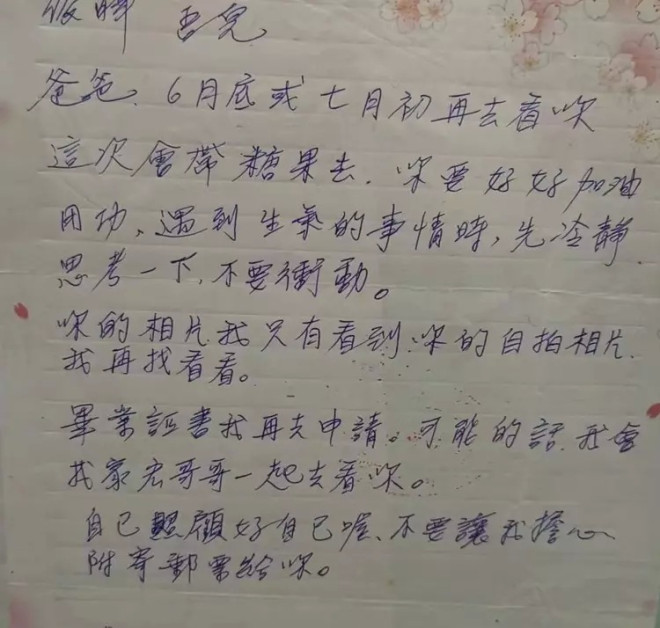 吾兒
爸爸、6月底或七月初再去看妳
這次會帶糖果去、妳要好好加油
用功、遇到生氣的事情時，先冷靜
思考一下，不要衝動。
妳的相片我只有看到妳的自拍相片
我再找看看。
畢業証書我再去申請。可能的話我會
找家宏哥哥一起去看妳。
自己照顧好自己喔、不要讓我擔心
附寄郵票給妳。